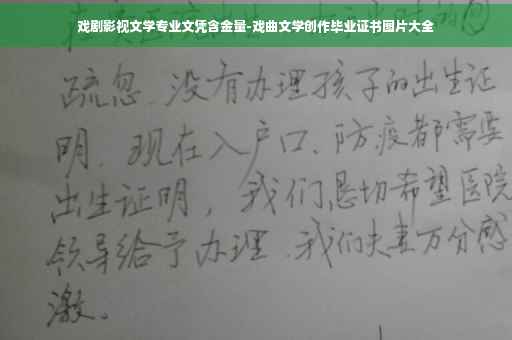 戏剧影视文学专业文凭含金量-戏曲文学创作毕业证书图片大全
疏忽、没有办理孩子的出生证
明、现在入户口、防疫都需要
出生证明，我们恳切希望医院
领导给予办理、我们夫妻万分感
激。